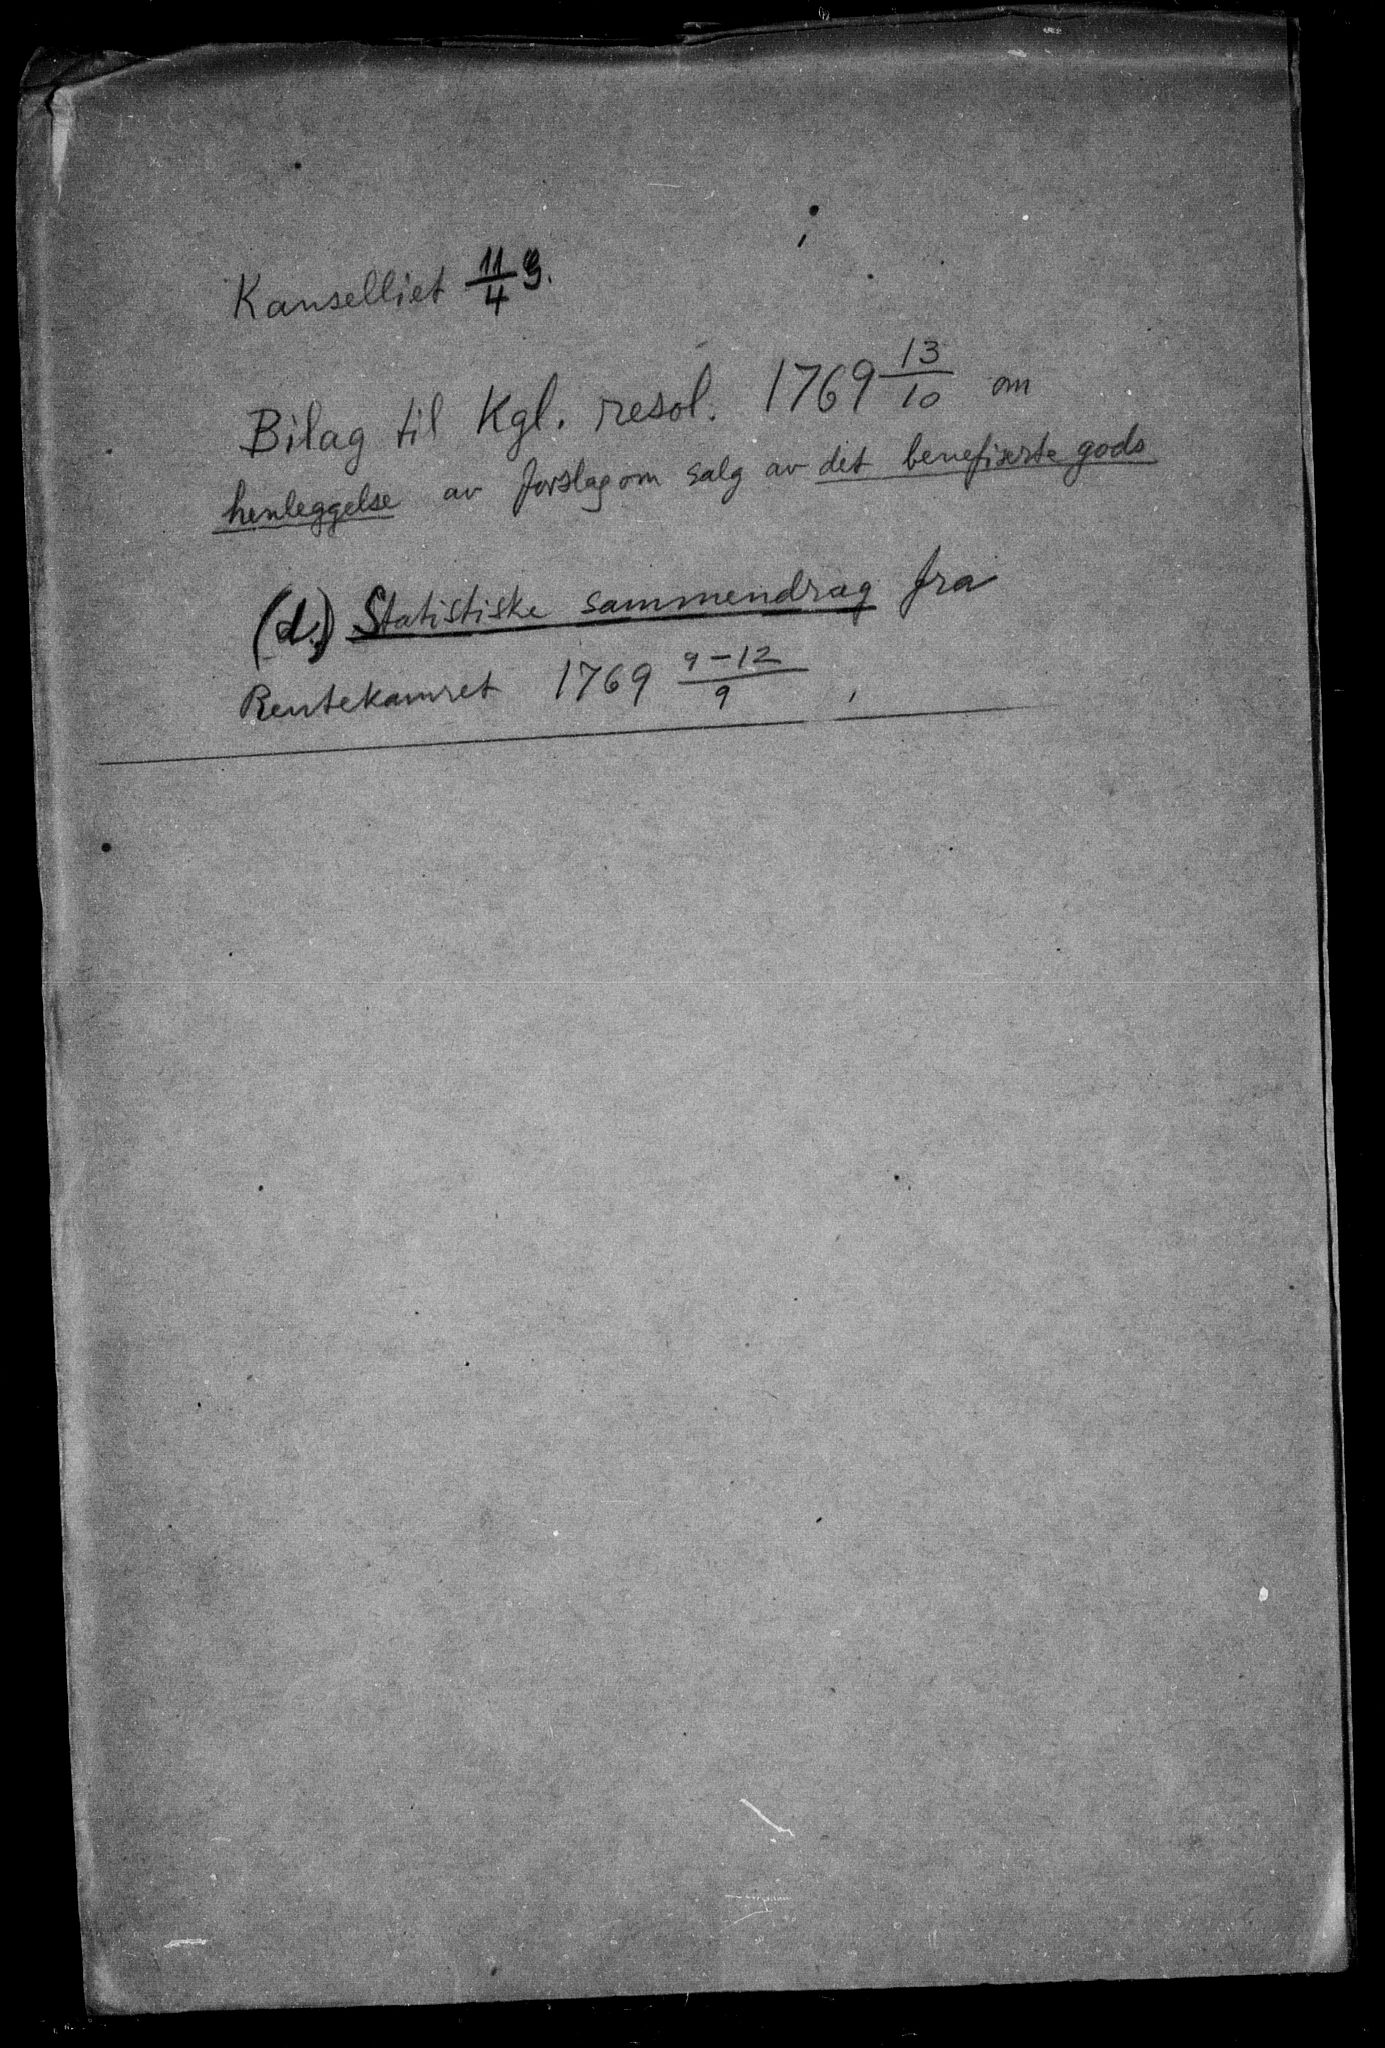 Kanselliet 11/4 9.
Bilag til Kgl. resol. 1769 13/10 om
henleggelse av forslag om salg av det benefiserte gods
(d.) Statistiske sammendrag fra
Rentekamret 1769 9-12/9